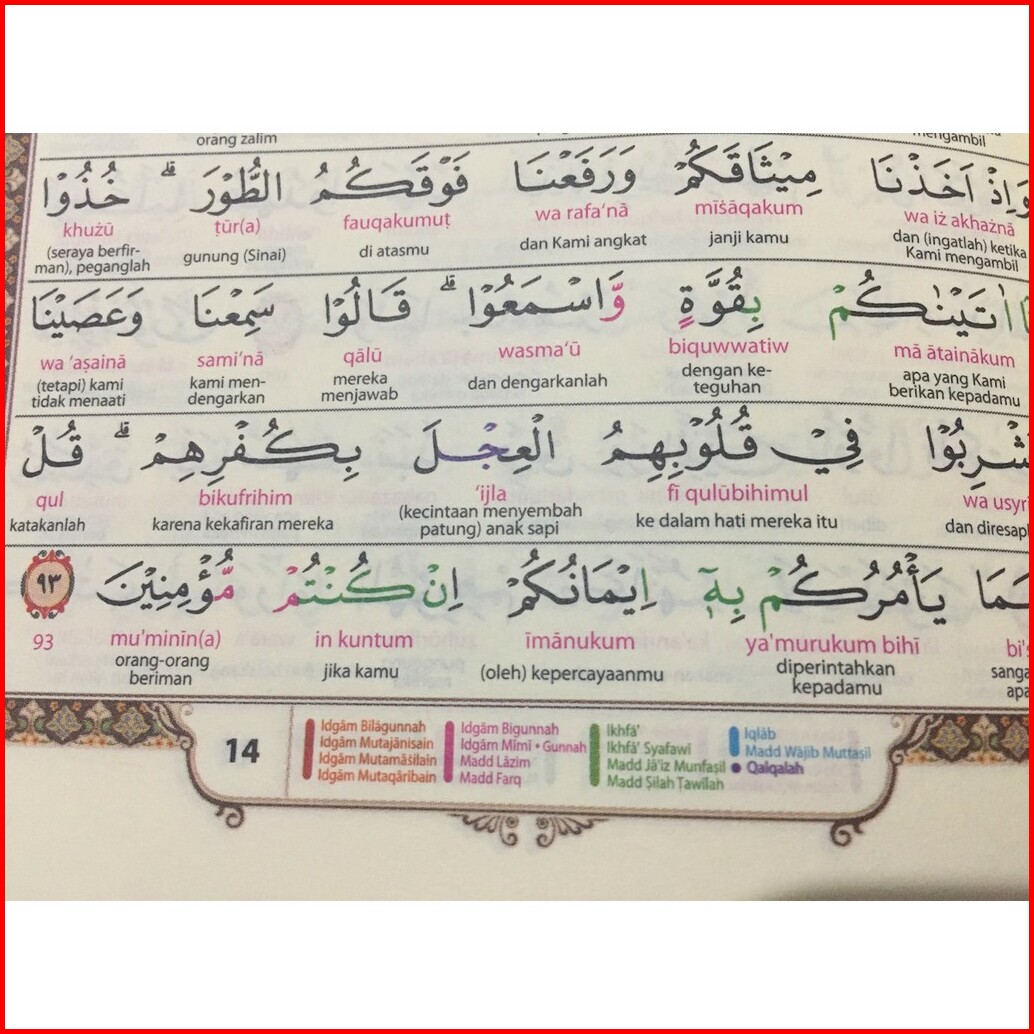 orang zalim mengambil
وَاِذْ اَخَذْنَا مِيْثَاقَكُمْ وَرَفَعْنَا فَوْقَكُمُ الطُّوْرَۗ خُذُوْا
wa iż akhażnā mīṡāqakum wa rafa‘nā fauqakumuṭ ṭūr(a) khużū
dan (ingatlah) ketika Kami mengambil janji kamu dan Kami angkat di atasmu gunung (Sinai) (seraya berfir-man), peganglah
اٰتَيْنٰكُمْ بِقُوَّةٍ وَّاسْمَعُوْاۗ قَالُوْا سَمِعْنَا وَعَصَيْنَا
mā ātainākum biquwwatiw wasma‘ū qālū sami‘nā wa ‘aṣainā
apa yang Kami berikan kepadamu dengan ke-teguhan dan dengarkanlah mereka menjawab kami men-dengarkan (tetapi) kami tidak menaati
شْرِبُوْا فِيْ قُلُوْبِهِمُ الْعِجْلَ بِكُفْرِهِمْۗ قُلْ
wa usyri fī qulūbihimul ‘ijla bikufrihim qul
dan diresap ke dalam hati mereka itu (kecintaan menyembah patung) anak sapi karena kekafiran mereka katakanlah
سَمَا يَأْمُرُكُمْ بِهٖٓ اِيْمَانُكُمْ اِنْ كُنْتُمْ مُّؤْمِنِيْنَ ٩٣
bi's ya'murukum bihī īmānukum in kuntum mu'minīn(a) 93
sanga apa diperintahkan kepadamu (oleh) kepercayaanmu jika kamu orang-orang beriman
14
Idgām Bilāgunnah
Idgām Mutajānisain
Idgām Mutamāṡilain
Idgām Mutaqāribain
Idgām Bigunnah
Idgām Mīmī • Gunnah
Madd Lāzim
Madd Farq
Ikhfā'
Ikhfā' Syafawī
Madd Jā'iz Munfaṣil
Madd Ṣilah Ṭawīlah
Iqlāb
Madd Wājib Muttaṣil
Qalqalah